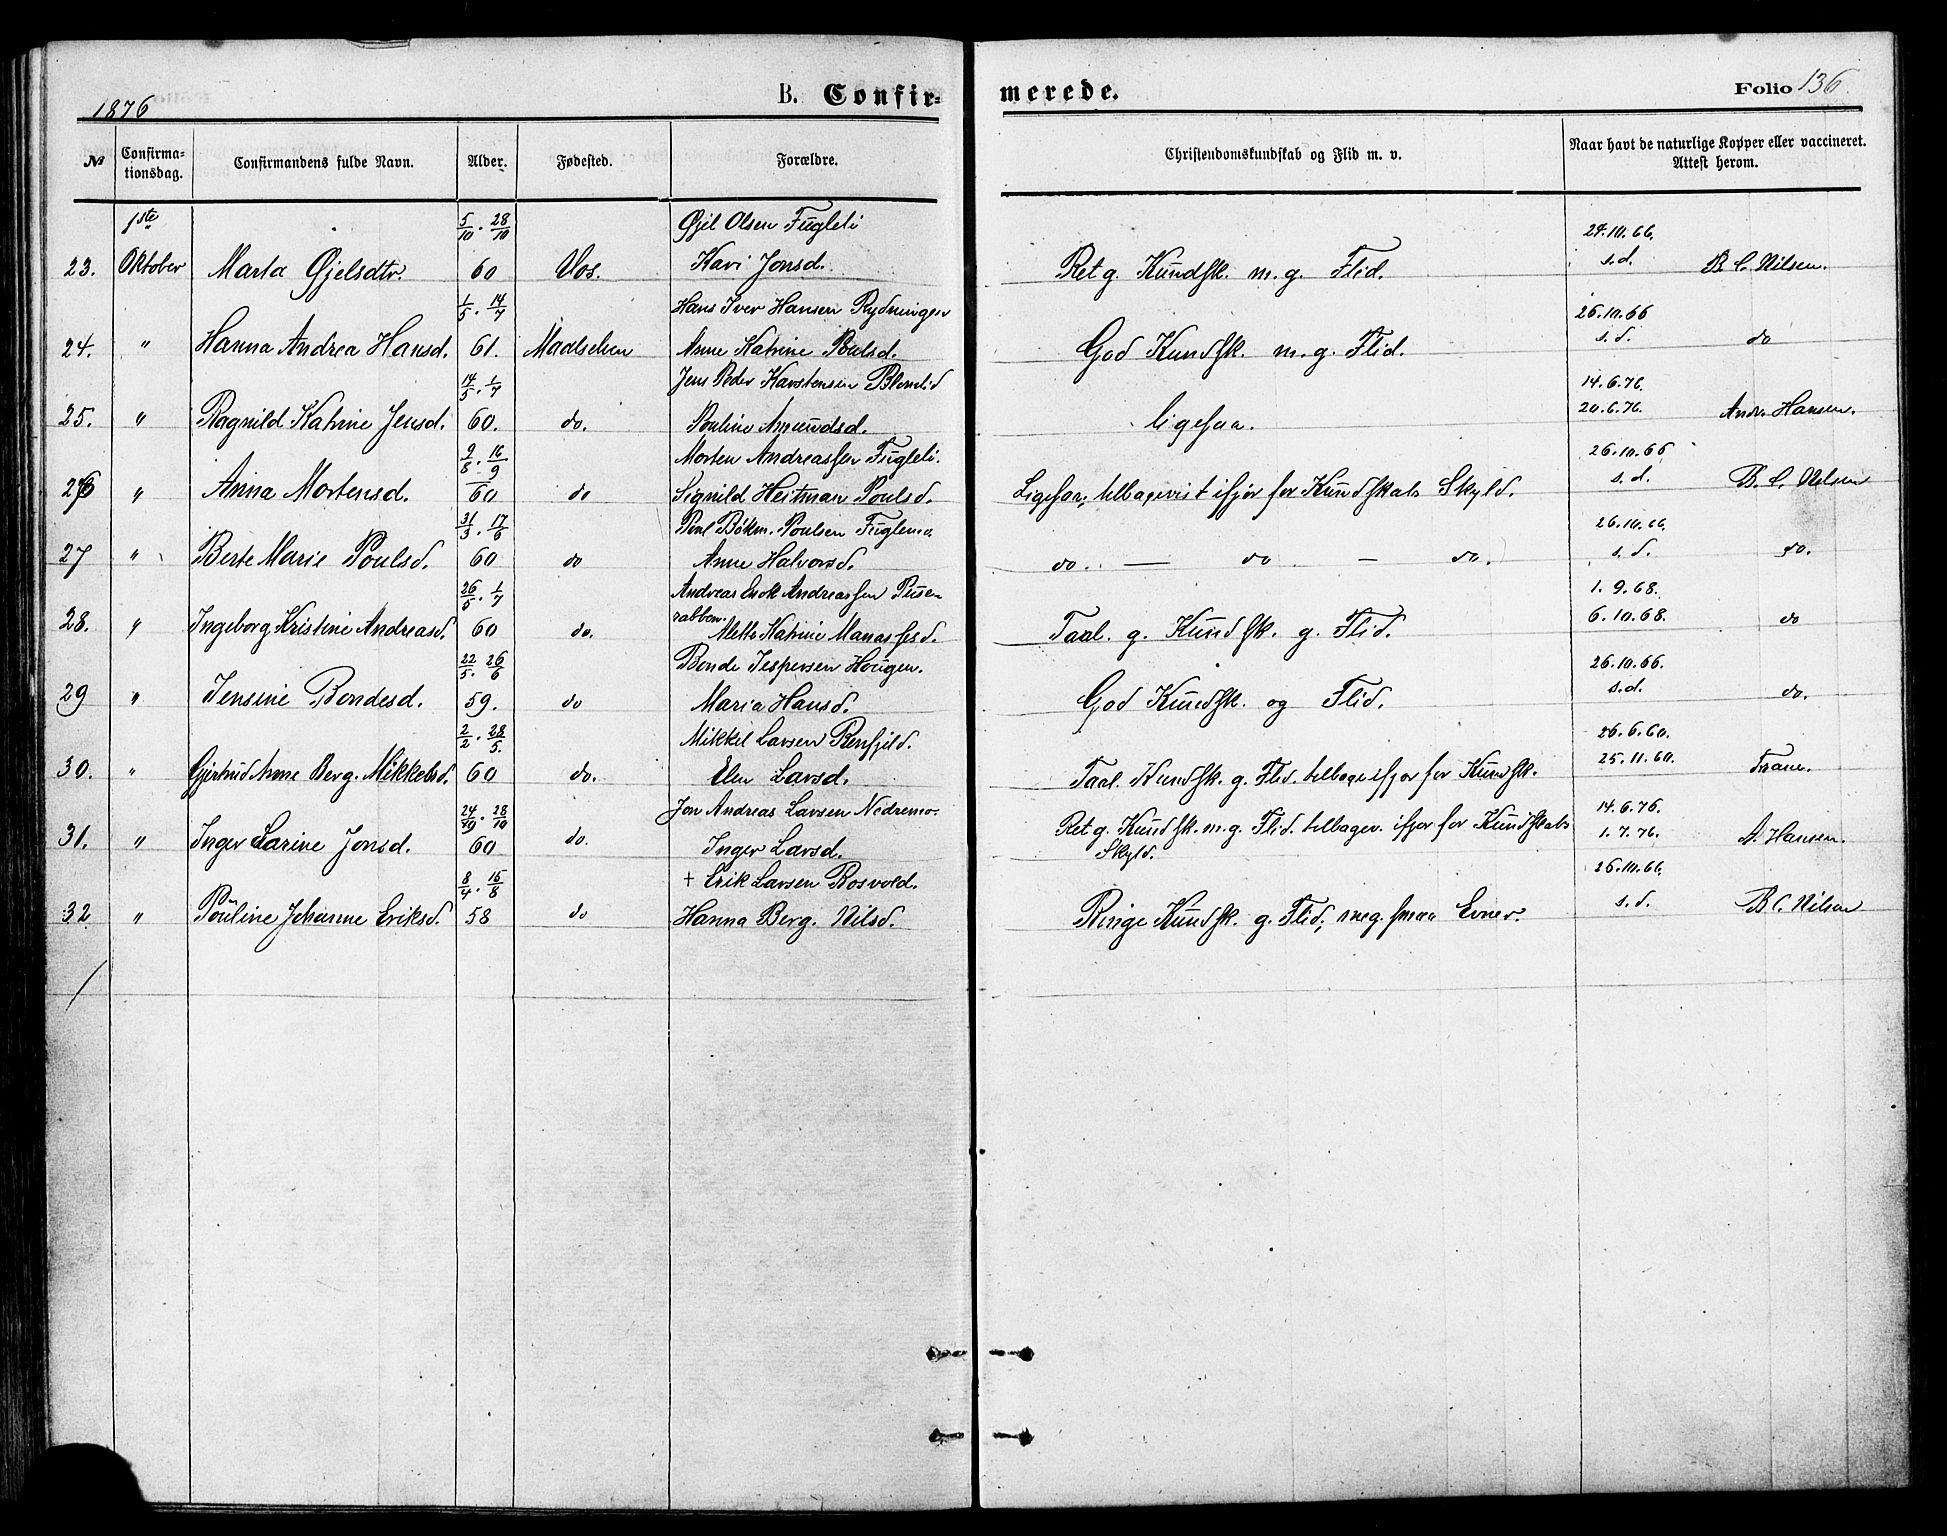 1876 B. Confirmerede. Folio 136
No Confirmationsdag. Confirmandens fulde Navn. Alder. Fødested. Forældre. Christendomskundskab og Flid m. v. Naar havt de naturlige Kopper eller vaccineret. Attest herom.
1ste 5/10. 28/10 Øjel Olsen Fugleli 24.10.66.
23. Oktober Marta Øjelsdtr. 60 Vos. Kari Jonsd. Ret g. Kundsk. m. g. Flid. s.d. B. C. Nilsen.
1/5. 14/7 Hans Iver Hansen Rydningen 26.10.66
24. " Hanna Andrea Hansd. 61. Maalselven Anne Katrine Poulsd. God Kundsk. m. g. Flid. s.d. do
14/5. 1/7 Jens Peder Karstensen Blomlid 14.6.76.
25. " Ragnild Katrine Jensd. 60. do. Pouline Amundsd. ligesaa. 20.6.76. Andr. Hansen.
9/8. 16/9 Morten Andreassen Fugleli. 26.10.66
26 " Anna Mortensd. 60 do Signild Heitman Poulsd. Ligesaa; tilbagevist ifjor for Kundskabs Skyld. s.d. B. C. Nilsen
31/3. 17/6 Poul Bökm. Poulsen Fuglemo. 26.10.66.
27 " Berte Marie Poulsd. 60 do Anne Halvorsd. do. — do — do. s.d. do.
26/5. 1/7 Andreas Andreassen Pusen- 1.9.68.
rabben.
28. " Ingeborg Kristine Andreasd. 60 do. Mette Katrine Manassesd. Taal. g. Kundsk. g. Flid. 6.10.68. do
22/5. 26/6 Bonde Jespersen Hougen. 26.10.66.
29 " Jensine Bondesd. 59. do Maria Hansd. God Kundsk. og Flid. s.d. do.
2/2. 28/5. Mikkel Larsen Renfjeld. 26.6.60.
30. " Gjertrud Anne Berg. Mikkelsd. 60 do. Elen Larsd. Taal. Kundsk. g. Flid. tilbage ifjor for Kundsk. 25.11.60. Trane.
24/10. 28/10 Jon Andreas Larsen Nedremo. 14.6.76.
31. " Inger Larine Jonsd. 60 do. Inger Larsd. Ret g. Kundsk. m. g. Flid. tilbagev. ifjor for Kundskabs 1.7.76. A. Hansen.
Skyld.
8/4. 15/8 + Erik Larsen Rosvold. 26.10.66.
32. " Pouline Johanne Eriksd. 58 do Hanna Berg. Nilsd. Ringe Kundsk. g. Flid; meg. smaa Evner. s.d. B C. Nilsen